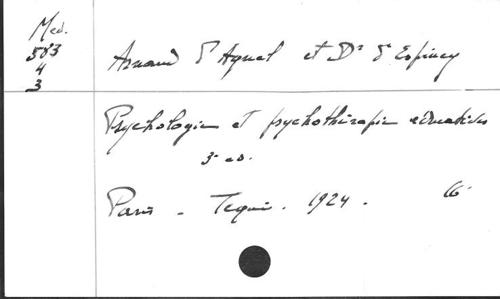 Med.
583
4
3
Arnaud d'Agnel et Dr d'Espiney
Psychologie et psychothérapie éducatives
3e ed.
Paris - Tequi. 1924.